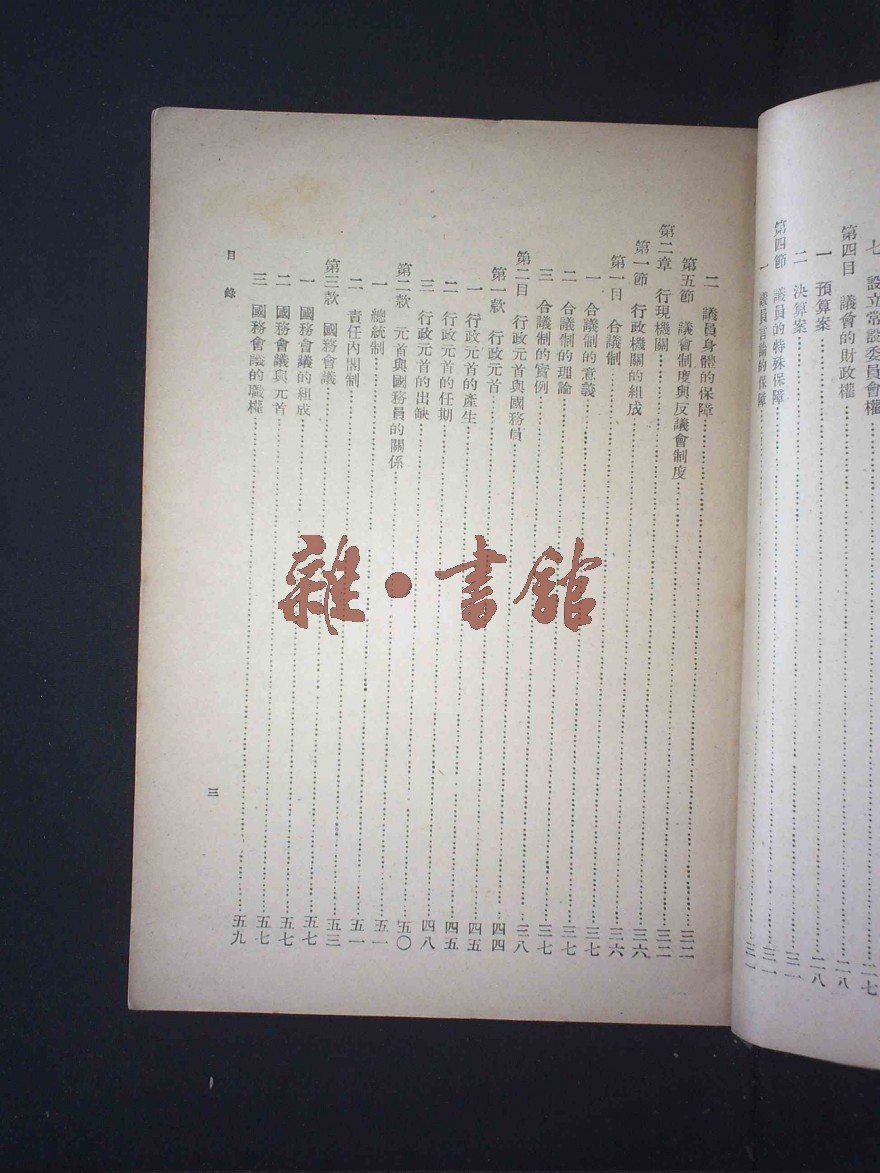 七　設立常設委員會權……二七
第四目　議會的財政權……二八
一　預算案……二八
二　決算案……三一
第四節　議員的特殊保障……三一
一　議員言論的保障……三一
二　議員身體的保障……三二
第五節　議會制度與反議會制度……三二
第二章　行現機關……三六
第一節　行政機關的組成……三六
第一目　合議制……三七
一　合議制的意義……三七
二　合議制的理論……三七
三　合議制的實例……三八
第二目　行政元首與國務員……四四
第一款　行政元首……四四
一　行政元首的產生……四五
二　行政元首的任期……四五
三　行政元首的出缺……四八
第二款　元首與國務員的關係……五〇
一　總統制……五一
二　責任內閣制……五一
第三款　國務會議……五三
一　國務會議的組成……五七
二　國務會議與元首……五七
三　國務會議的職權……五九
目錄
三
雜·書館